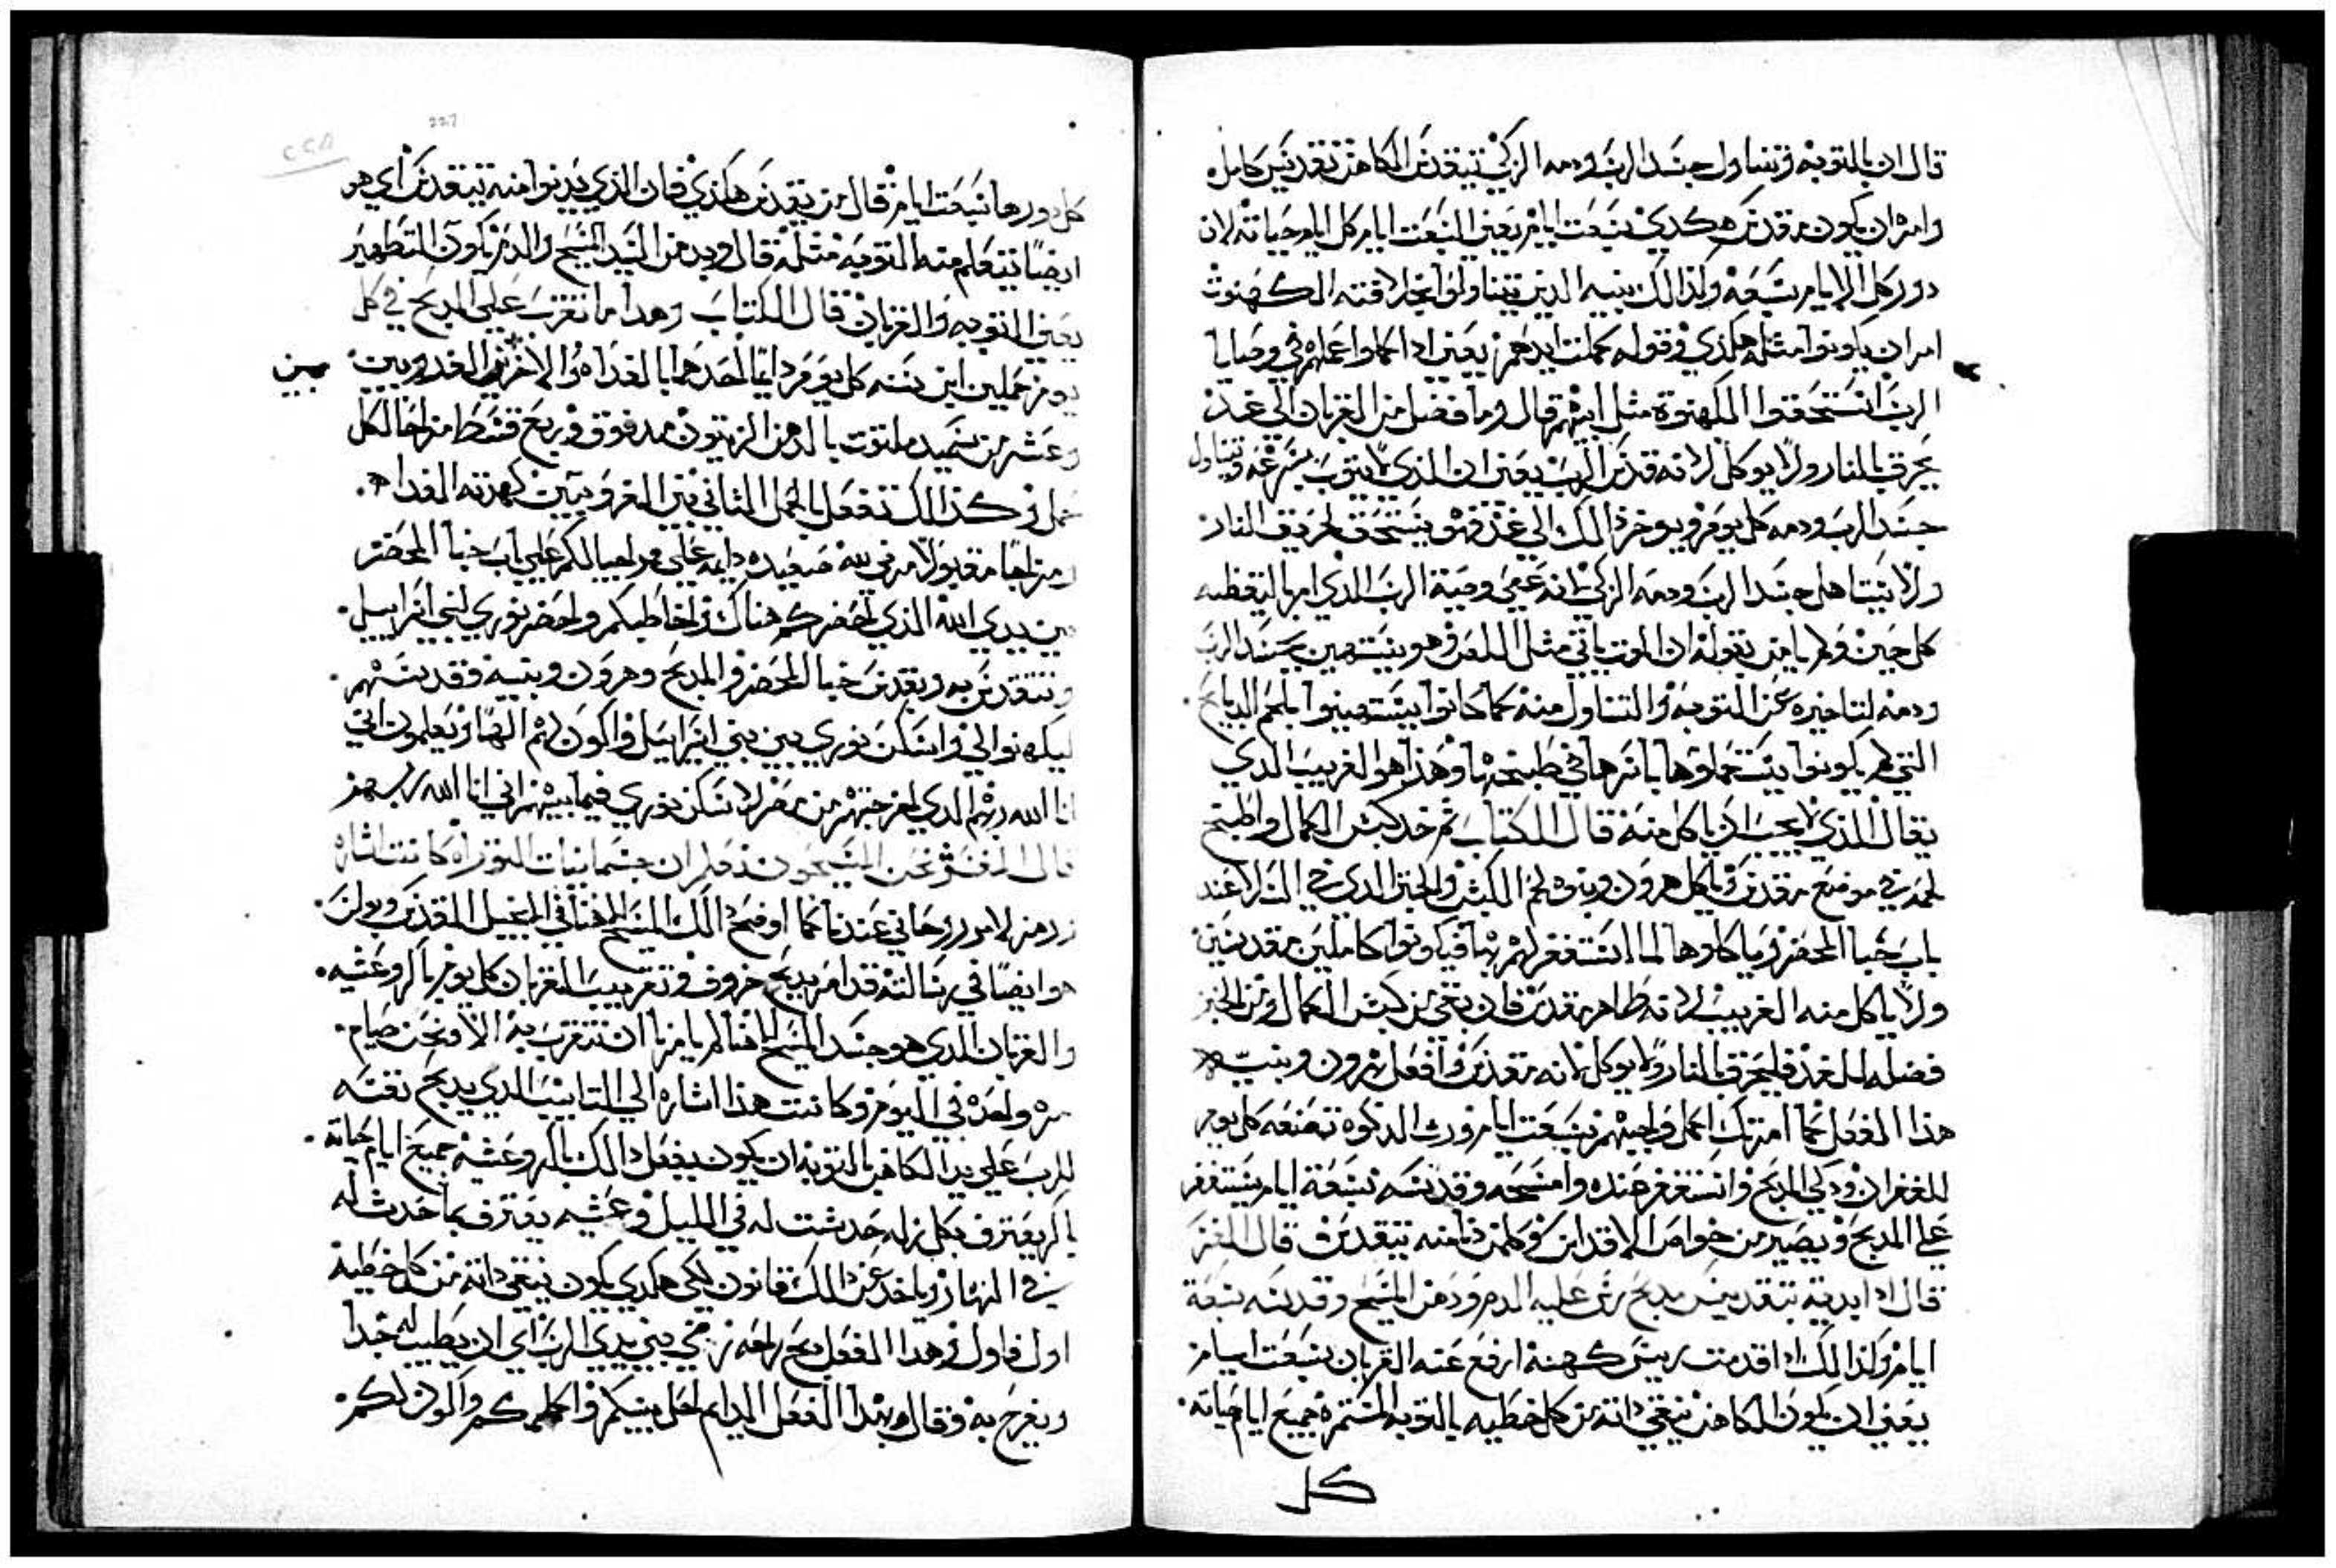 قال ان بالتوبه وتناول جسد الرب ودمه الزكي تتيقدس الكاهن تقديس كامله
وامر ان يكون مقدس هكدي سبعت ايام يعني السبعت ايام كل ايام حياته لان
دور كل الايام سبعه ولذالك بنيه الدين يتناولوا بخلافته الكهنوت
امر ان يكونوا مثله هكذي وقوله كملت ايدهم يعني ادا كملوا عملهم في وصايا
الرب استحقوا الكهنوة مثل ابيهم قال وما فضل من القربان الى غد
يحرق بالنار ولا يوكل لانه قدس الرب يعني ان الذي لا يتوب بسرعه ويتناول
جسد الرب ودمه كل يوم ويوخر ذالك الي غد فهو يستحق لحريق النار
ولا يتاهل جسد الرب ودمه الزكي لانه عصي وصية الرب الدي امر باليقظه
كل حين ولم يامن بقوله ان الموت ياتي مثل اللص وهو يستهين بجسد الرب
ودمه لتاخيره عن التوبه والتناول منه كما كانوا يستهينوا بلحم الدبايح
التي لم يكونوا يستعملوها باسرها في طبخها وهذا هو الغريب الدي
يقال الذي لا يجب ان ياكل منه قال الكتاب تم خد كبش الكمال واطبخ
لحمه في موضع مقدس وياكل هرون وبنوه لحم الكبش والخبز الدي في السل عند
باب خبا المحضر وياكلوها لما استغفر لهم بها فيكونوا كاملين مقدسين
ولا ياكل منه الغريب لانه طاهر مقدس فان بقي من كبش الكمال ومن الخبز
فضله للغد فليحرق بالنار ولا يوكل لانه مقدس وافعل بهرون وبنيه
هذا الفعل كما امرتك اكمل واجبهم سبعت ايام وثور الدكوه تصنعه كل يوم
للغفران ودكي المدبح واستغفر عنده وامسحه وقدسه سبعة ايام يستغفر
علي المدبح ويصير من خواص الاقداس وكلمن دنا منه يتقدس قال المفسر
قال ادا بديه بتقديس مدبح رش عليه الدم ودهن المسيح وقدسه سبعة
ايام ولذالك ادا قدمت رييس كهنة ارفع عنه القربان سبعت ايام
يعني ان يكون الكاهن ينقي داته من كل خطيه بالتوبه المستمره جميع ايام حياته
كل
227
كل دورها سبعت ايام قال من يقدس هكذي فان الذي يدنوا منه يتقدس اي هو
ايضا يتعلم منه التوبه مثله قال وبدهن السيد المسيح والدم يكون التطهير
يعني التوبه والقربان قال الكتاب وهدا ما تقرب علي المدبح في كل
يوم حملين ابن سنه كل يوم دايما احدهما بالغداه والاخر بين الغروبين
وعشر من سميد ملتوت بالدهن الزيتون مدقوق وربع قسط مزاجا لكل
حمل وكذالك تفعل بالحمل الثاني بين الغروبين كهديه الغداه
ومزاجا مقبولا مرضي لله صعيده دايمه علي مر اجيالكم علي باب خبا المحضر
بين يدي الله الذي احضركم هناك واخاطبكم واحضر نوري لبني اسراييل
وتتقدس به ويقدس خبا المحضر والمدبح وهرون وبنيه وقدسهم
ليكهنوا لي واسكن نوري بين بني اسراييل واكون لهم الها ويعلمون اني
انا الله ربهم الدي اخرجتهم من مصر لاسكن نوري فيما بينهم اني انا الله ربهم
قال المفسر نحن المسيحيون نعلم ان جسمانيات التوراه كانت اشاره
ورمز لامور روحاني عندنا كما اوضح دالك المسيح الهنا في انجيل المقدس وبولس
هو ايضا في رسالته قد امر بدبح خروف وتقريب القربان كل يوم باكر وعشيه
والقربان الدي هو جسد المسيح الهنا لم يامرنا ان نتقرب به الا ونحن صيام
مره واحده في اليوم وكانت هذا اشاره الي التايب الدي يدبح نفسه
للرب علي يد الكاهن بالتوبه ان يكون يفعل دالك باكر وعشيه جميع ايام حياته
باكر يعترف بكل زله حدثت له في الليل وعشيه يعترف بما حدث له
في النهار وياخد عن دالك قانون لكي هكدي يكون ينقي داته من كل خطيه
اول فاول وهدا الفعل دبح رايحه رضي بين يدي الرب اي ان يطيب له جدا
ويفرح به وقال وبهدا الفعل الدايم احل بينكم واكلمكم واكون لكم